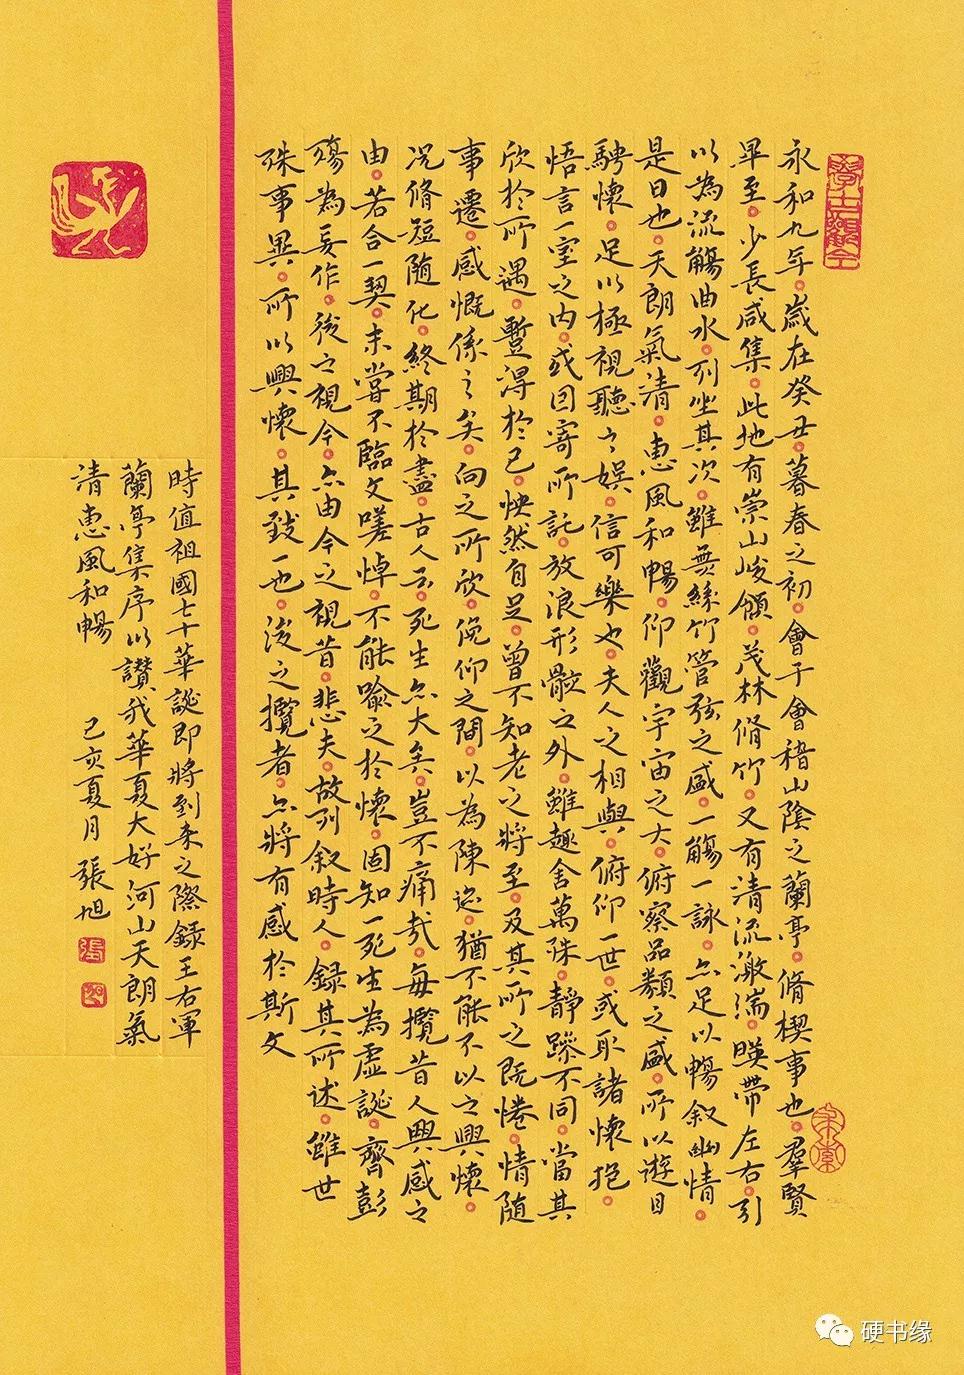 永和九年。歲在癸丑。暮春之初。會于會稽山陰之蘭亭。脩稧事也。羣賢
畢至。少長咸集。此地有崇山峻領。茂林脩竹。又有清流激湍。暎帶左右。引
以為流觴曲水。列坐其次。雖無絲竹管弦之盛。一觴一詠。亦足以暢叙幽情。
是日也。天朗氣清。惠風和暢。仰觀宇宙之大。俯察品類之盛。所以遊目
騁懷。足以極視聽之娛。信可樂也。夫人之相與。俯仰一世。或取諸懷抱。
悟言一室之內。或因寄所託。放浪形骸之外。雖趣舍萬殊。靜躁不同。當其
欣於所遇。蹔得於己。怏然自足。曾不知老之將至。及其所之既惓。情隨
事遷。感慨係之矣。向之所欣。俛仰之間。以為陳迹。猶不能不以之興懷。
況脩短隨化。終期於盡。古人云。死生亦大矣。豈不痛哉。每攬昔人興感之
由。若合一契。未嘗不臨文嗟悼。不能喻之於懷。固知一死生為虛誕。齊彭
殤為妄作。後之視今。亦由今之視昔。悲夫。故列叙時人。錄其所述。雖世
殊事異。所以興懷。其致一也。後之攬者。亦將有感於斯文
時值祖國七十華誕即將到来之際錄王右軍
蘭亭集序以讚我華夏大好河山天朗氣
清惠風和暢 己亥夏月張旭
硬书缘